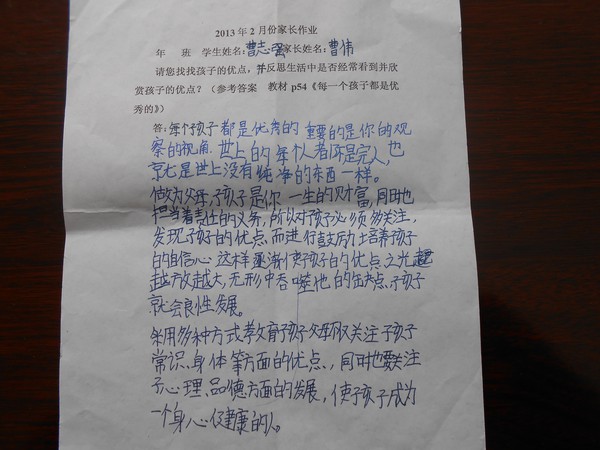 2013年2月份家长作业
年 班 学生姓名:曹志强家长姓名:曹伟
请您找找孩子的优点,并反思生活中是否经常看到并欣
赏孩子的优点?(参考答案 教材 p54《每一个孩子都是优
秀的》)
答:每个孩子都是优秀的 重要的是你的观
察的视角 世上的每个人都不是完人,也
就是世上没有纯净的东西一样。
做为父母,孩子是你一生的财富,同时也
担当着责任的义务,所以对孩子必须多关注,
发现孩子的优点 而进行鼓励 培养孩子
的自信心 这样逐渐使孩子的优点之光越
放越大,无形中吞噬他的缺点,孩子
就会良性发展。
采用多种方式教育孩子 父母不仅关注孩子
常识、身体等方面的优点,同时也要关注
子心理、品德方面的发展,使孩子成为
一个身心健康的人。